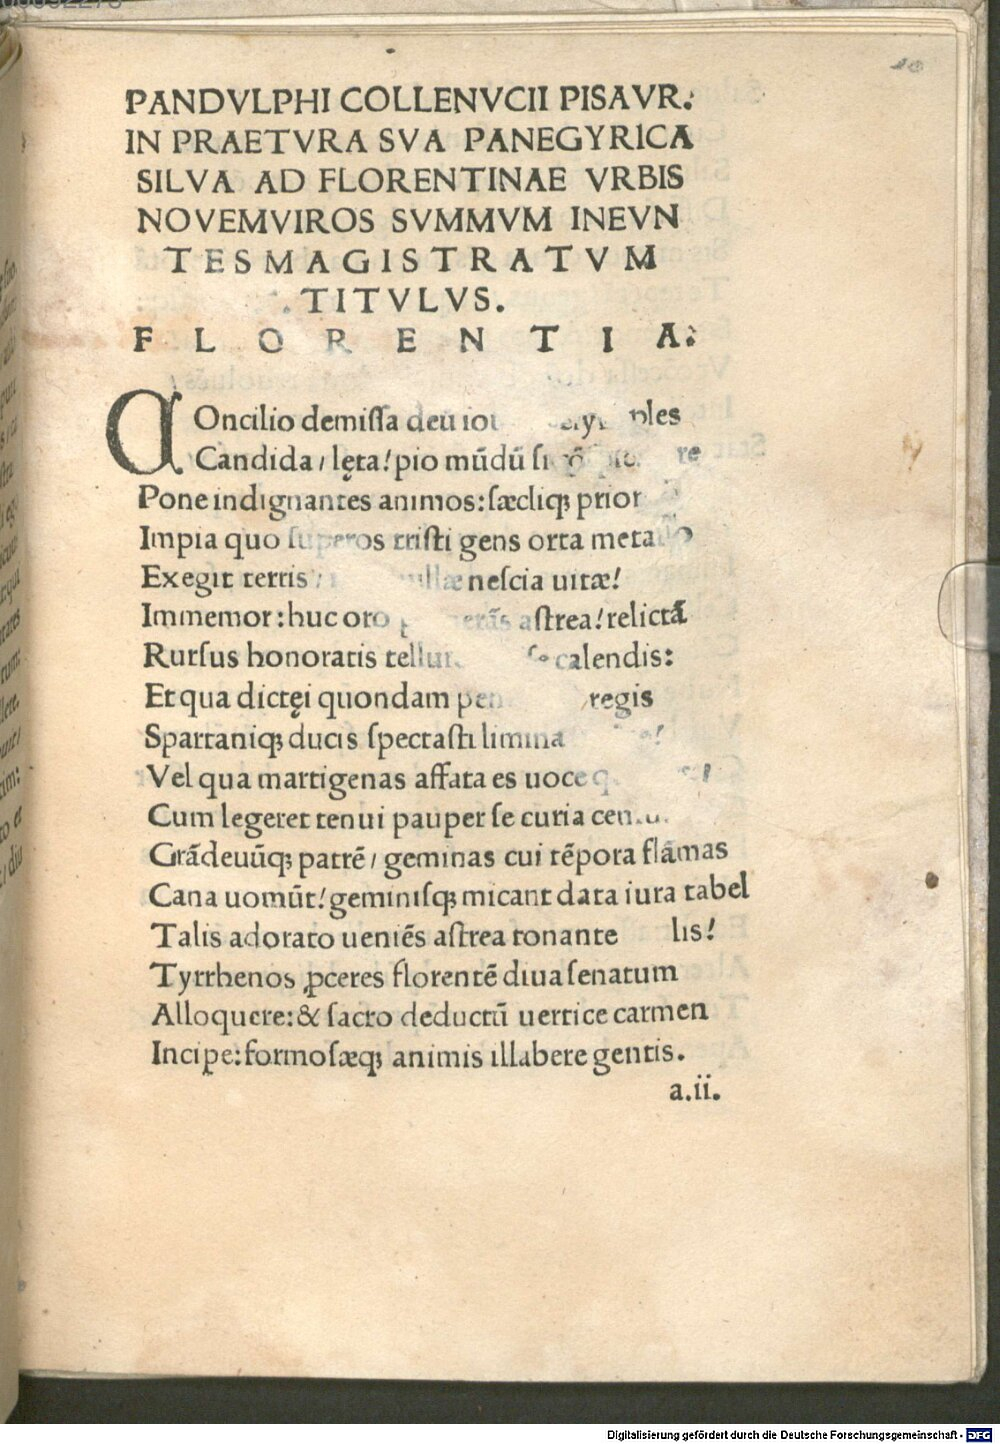 PANDVLPHI COLLENVCII PISAVR.
IN PRAETVRA SVA PANEGYRICA
SILVA AD FLORENTINAE VRBIS
NOVEMVIROS SVMMVM INEVN
TESMAGISTRATVM
.TITVLVS.
FLORENTIA:
COncilio demiſſa deū
Candida / lęta! pio mūdū
Pone indignantes animos: ſæcliqꝫ prior
Impia quo ſuperos triſti gens orta
Exegit terris neſcia uitæ!
Immemor: huc oro aſtrea! relictā
Rurſus honoratis calendis:
Et qua dictęi quondam regis
Spartaniqꝫ ducis ſpectaſti limina
Vel qua martigenas affata es uoce
Cum legeret tenui pauper ſe curia
Grādeuūqꝫ patrē / geminas cui tēpora flāmas
Cana uomūt! geminiſqꝫ micant data iura tabel
Talis adorato ueniēs aſtrea tonante lis!
Tyrrhenos ꝓceres florentē diua ſenatum
Alloquere: & ſacro deductū uertice carmen
Incipe: formoſæqꝫ animis illabere gentis.
a.ii.
Digitalisierung gefördert durch die Deutsche Forschungsgemeinschaft - DFG